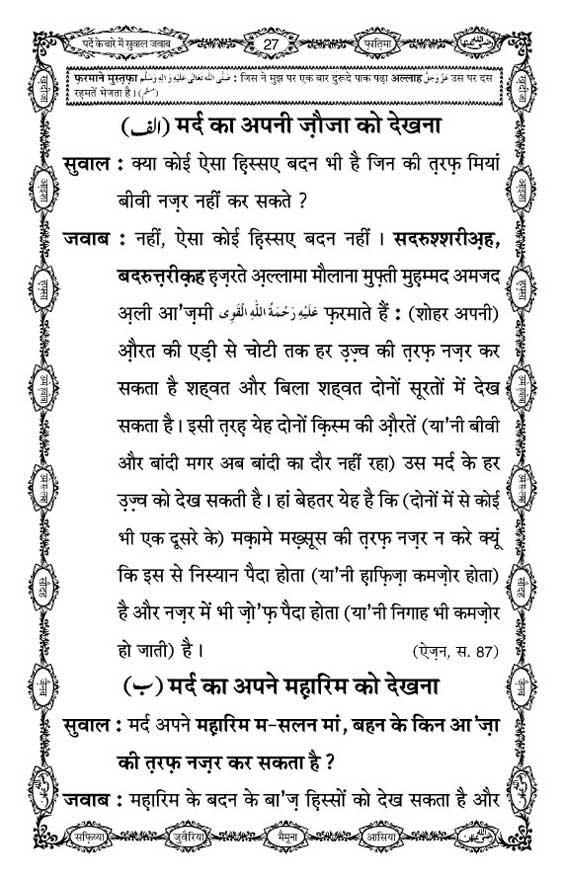 पर्दे के बारे में सुवाल जवाब
27
फ़ातिमा
फ़रमाने मुस्तफ़ा صَلَّى اللهُ تَعَالٰى عَلَيْهِ وَاٰلِهٖ وَسَلَّم : जिस ने मुझ पर एक बार दुरूदे पाक पढ़ा अल्लाह عَزَّوَجَلَّ उस पर दस
रहमतें भेजता है। (مسلم)
(الف) मर्द का अपनी ज़ौजा को देखना
सुवाल : क्या कोई ऐसा हिस्सए बदन भी है जिन की त़रफ़ मियां
बीवी नज़र नहीं कर सकते ?
जवाब : नहीं, ऐसा कोई हिस्सए बदन नहीं । सदरुश्शरीअ़ह,
बदरुत्त़रीक़ह हज़रते अ़ल्लामा मौलाना मुफ़्ती मुह़म्मद अमजद
अ़ली आ'ज़मी عَلَيْهِ رَحْمَةُ اللهِ الْقَوِى फ़रमाते हैं : (शोहर अपनी)
औ़रत की एड़ी से चोटी तक हर उ़ज़्व की त़रफ़ नज़र कर
सकता है शह्वत और बिला शह्वत दोनों सूरतों में देख
सकता है। इसी त़रह़ येह दोनों क़िस्म की औ़रतें (या'नी बीवी
और बांदी मगर अब बांदी का दौर नहीं रहा) उस मर्द के हर
उ़ज़्व को देख सकती है। हां बेहतर येह है कि (दोनों में से कोई
भी एक दूसरे के) मक़ामे मख़्सूस की त़रफ़ नज़र न करे क्यूं
कि इस से निस्यान पैदा होता (या'नी ह़ाफ़िज़ा कमज़ोर होता)
है और नज़र में भी ज़ो'फ़ पैदा होता (या'नी निगाह भी कमज़ोर
हो जाती) है । (ऐज़न, स. 87)
(ب) मर्द का अपने मह़ारिम को देखना
सुवाल : मर्द अपने मह़ारिम म-सलन मां, बहन के किन आ'ज़ा
की त़रफ़ नज़र कर सकता है ?
जवाब : मह़ारिम के बदन के बा'ज़ हिस्सों को देख सकता है और
सफ़िय्या
जुवैरिया
मैमूना
आसिया